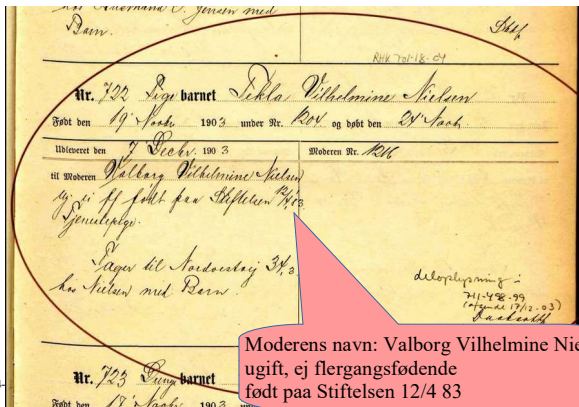 hos Husmand C. Jensen med
Barn.
Dbdf
RHK 701-18-04
Nr. 722 Pige barnet Tekla Vilhelmine Nielsen
Født den 19' Novbr 1903 under Nr. 1204 og døbt den 24' Novb.
Udleveret den 7 Decbr. 1903
Moderen Nr. 1216
til Moderen Valborg Vilhelmine Nielsen
Ug. ei ff født paa Stiftelsen 12/4 83.
Tjenestepige.
Tager til Nordvestvej 34,3
hos Nielsen med Barn.
deloplysning :
711-498-99
17/12-03)
Moderens navn: Valborg Vilhelmine Nie
ugift, ej flergangsfødende
født paa Stiftelsen 12/4 83
Nr. 723 Drenge barnet
Født den 17' Novbr 1903